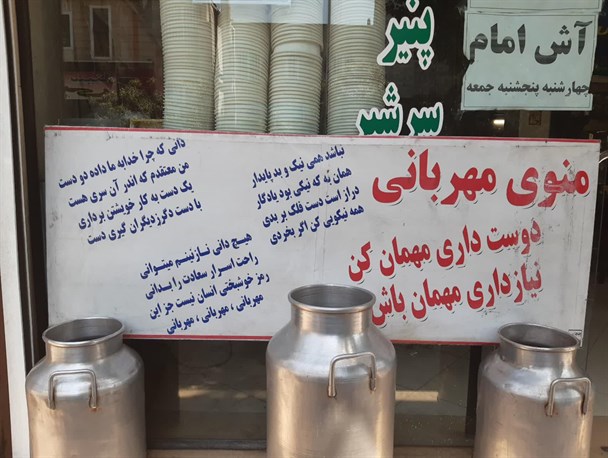 پنیر
سرشیر
آش امام
چهارشنبه پنجشنبه جمعه
منوی مهربانی
دوست داری مهمان کن
نیازداری مهمان باش
نباشد همی نیک و بد پایدار
همان به که نیکی بود یادگار
دراز است دست فلک بر بدی
همه نیکویی کن اگر بخردی
دانی که چرا خدابه ما داده دو دست
من معتقدم که اندر آن سری هست
یک دست به کار خویشتن پردازی
با دست دگرزدیگران گیری دست
هیچ دانی نازنینم میتوانی
راحت اسرار سعادت را بدانی
رمز خوشبختی انسان نیست جز این
مهربانی ، مهربانی ، مهربانی